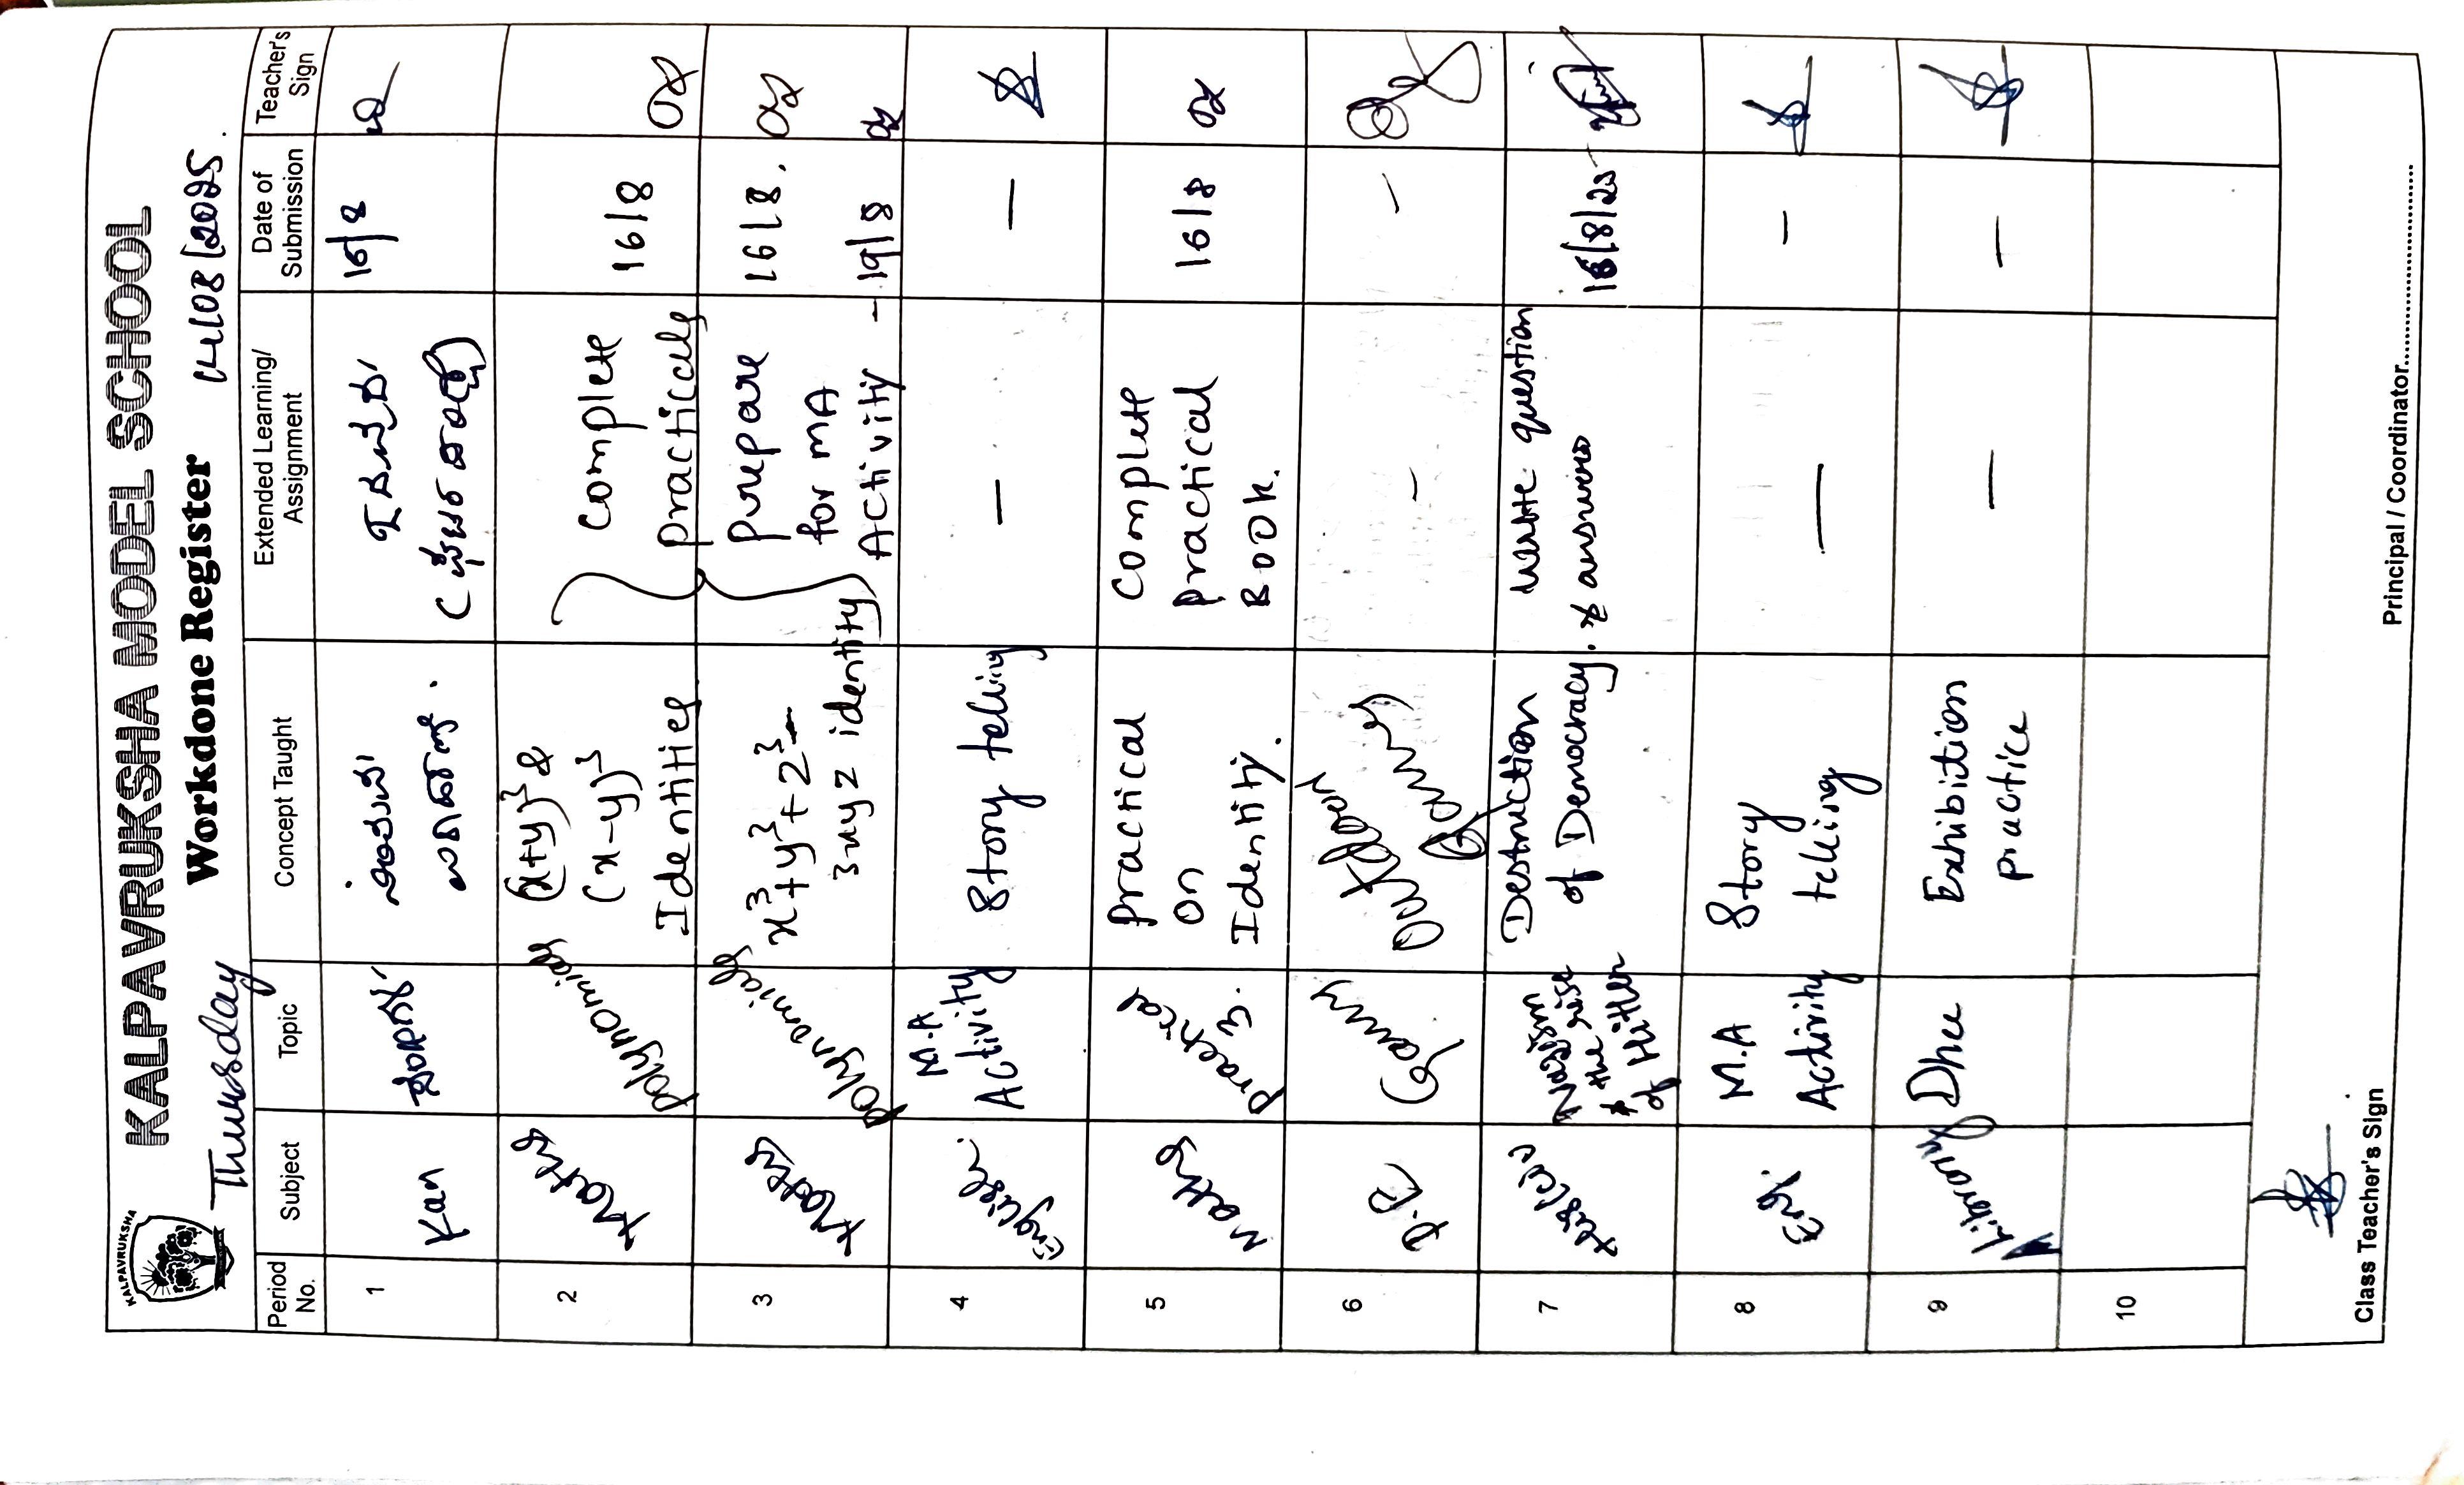 KALPAVRUKSHA
KALPAVRUKSHA MODEL SCHOOL
Thursday Workdone Register 14/08/2025.
Period No. Subject Topic Concept Taught Extended Learning/ Assignment Date of Submission Teacher's Sign
1 Kan 16/8
2 Maths polynomials (x+y)³ &
(x-y)³
Identities
Complete
practicals
16/8
3 Maths polynomials x³+y³+z³-
3xyz identity
prepare
for MA
Activity - 19/8
16/8.
4 English. M.A
Activity
Story telling — —
5 Maths Practical
3.
practical
on
Identity.
Complete
practical
Book.
16/8
6 P.E Games Outdoor
Games
– –
7 Nazism
& the rise
of Hitler
Destruction
of Democracy.
write question
& answers
16/8/25
8 Eng. M.A
Activity
Story
telling
— –
9 Library Exhibition
practice
— —
10
Class Teacher's Sign
Principal / Coordinator